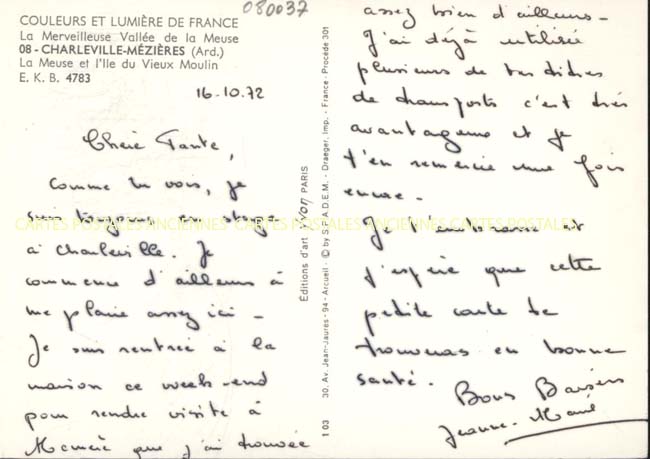 080037
COULEURS ET LUMIÈRE DE FRANCE
La Merveilleuse Vallée de la Meuse
08 - CHARLEVILLE-MÉZIÈRES (Ard.)
La Meuse et l'Ile du Vieux Moulin
E. K. B. 4783
16.10.72
Chère Tante,
Comme tu vois, je
suis toujours en stage
à Charleville. Je
commence d'ailleurs à
me plaire assez ici -
Je suis rentrée à la
maison ce week-end
pour rendre visite à
que j'ai trouvée
assez bien d'ailleurs -
J'ai déjà utilisé
plusieurs de tes
de transports c'est très
avantageux et je
t'en remercie une fois
encore -
Je t'embrasse et
j'espère que cette
petite carte te
trouvera en bonne
santé.
Bons Baisers
Jeanne-Marie
Éditions d'art YVON PARIS
30, Av. Jean-Jaurès - 94 - Arcueil - © by S.P.A.D.E.M. - Draeger, Imp. - France - Procédé 301
1 03
CARTES POSTALES ANCIENNES CARTES POSTALES ANCIENNES CARTES POSTALES